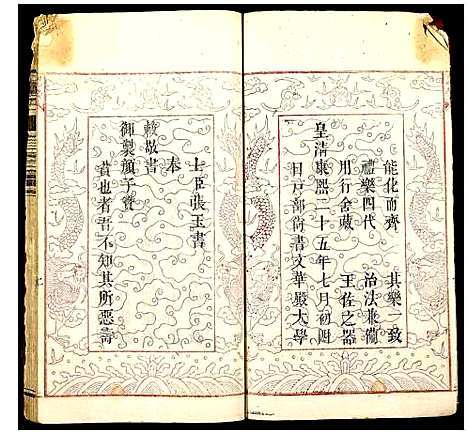 能化而齊　其樂一致
禮樂四代　治法兼備
用行舍藏　王佐之器
皇清康熙二十五年七月初
日戶部尚書文華殿大學
士臣張玉書
奉
敕敬書
御製顏子贊
賁也者吾不知其所惡壽